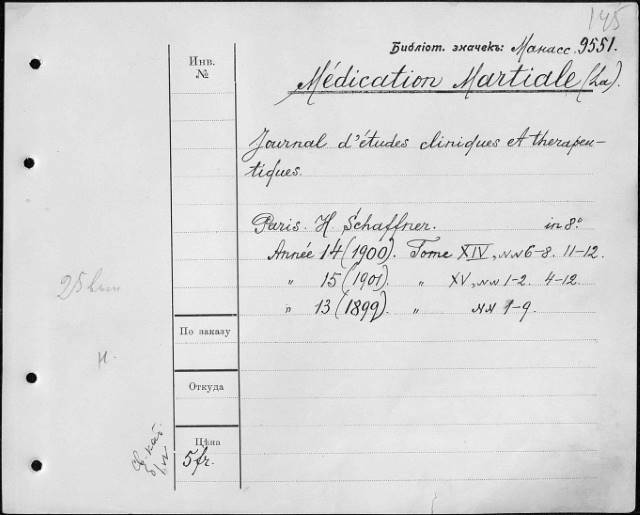 145
Библіот. значекъ: Манасс. 9551.
Инв.
№
Médication Martiale (La).
Journal d'études cliniques et therapeu-
tiques.
Paris. H. Schaffner. in 8°.
Année 14 (1900). Tome XIV, NN 6-8. 11-12.
" 15 (1901). " XV, NN 1-2. 4-12.
" 13 (1899). " NN 1-9.
По заказу
Н.
Откуда
Цѣна
5 fr.